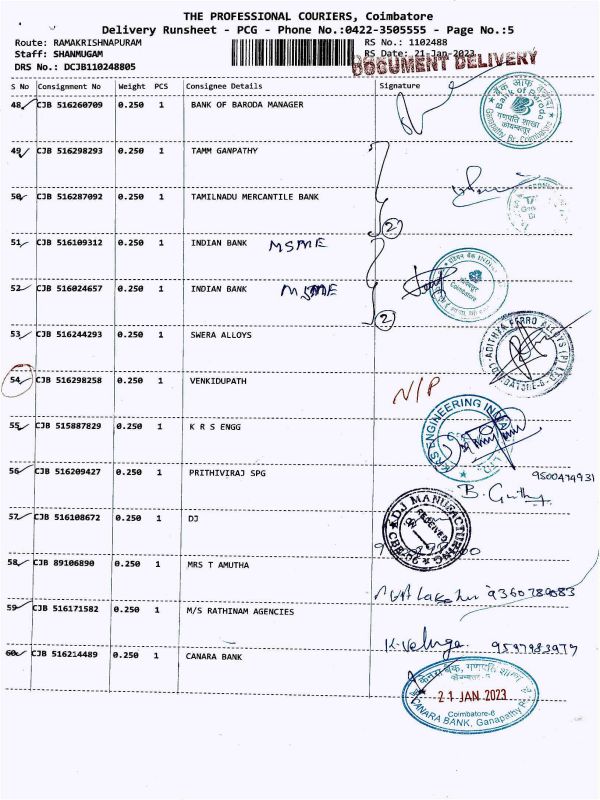 THE PROFESSIONAL COURIERS, Coimbatore
Delivery Runsheet - PCG - Phone No.:0422-3505555 - Page No.:5
Route: RAMAKRISHNAPURAM RS No.: 1102488
Staff: SHANMUGAM RS Date: 21-Jan-2023
DRS No.: DCJB110248805 DOCUMENT DELIVERY
S No Consignment No Weight PCS Consignee Details Signature
48 CJB 516260709 0.250 1 BANK OF BARODA MANAGER
बैंक ऑफ बड़ौदा
Bank of Baroda
गणपति शाखा
कोयम्बतूर
Ganapathy Br. Coimbatore
49 CJB 516298293 0.250 1 TAMM GANPATHY
50 CJB 516287092 0.250 1 TAMILNADU MERCANTILE BANK
2
51 CJB 516109312 0.250 1 INDIAN BANK MSME
52 CJB 516024657 0.250 1 INDIAN BANK MSME
Coimbatore
2
53 CJB 516244293 0.250 1 SWERA ALLOYS
ADITHYA FERRO ALLOYS (P) LTD
COIMBATORE-6
54 CJB 516298258 0.250 1 VENKIDUPATH N/P
55 CJB 515887829 0.250 1 K R S ENGG
KRS ENGINEERING INDIA
56 CJB 516209427 0.250 1 PRITHIVIRAJ SPG 9500474931
57 CJB 516108672 0.250 1 DJ
DJ MANUFACTURING
RECEIVED
58 CJB 89106890 0.250 1 MRS T AMUTHA
9360789083
59 CJB 516171582 0.250 1 M/S RATHINAM AGENCIES
9597983977
60 CJB 516214489 0.250 1 CANARA BANK
केनरा बैंक, गणपति शाखा
21 JAN 2023
Coimbatore-6
CANARA BANK, Ganapathy Br.